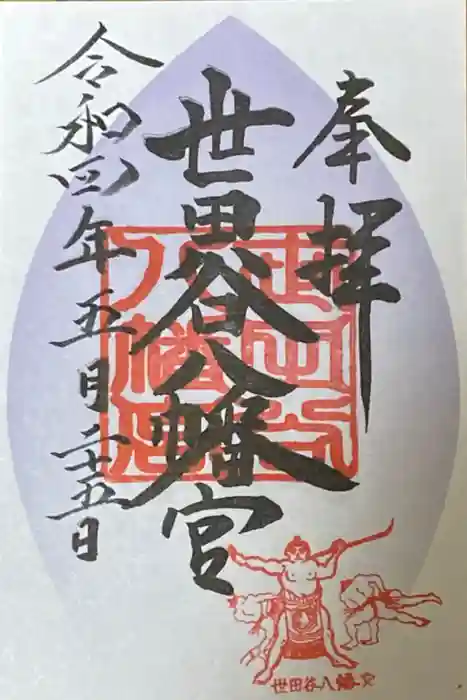 奉拝
世田谷八幡宮
令和四年五月二十五日
世田谷
八幡宮
世田谷八幡宮